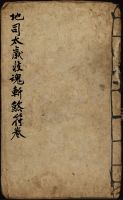 地司太歲收魂斬煞符卷